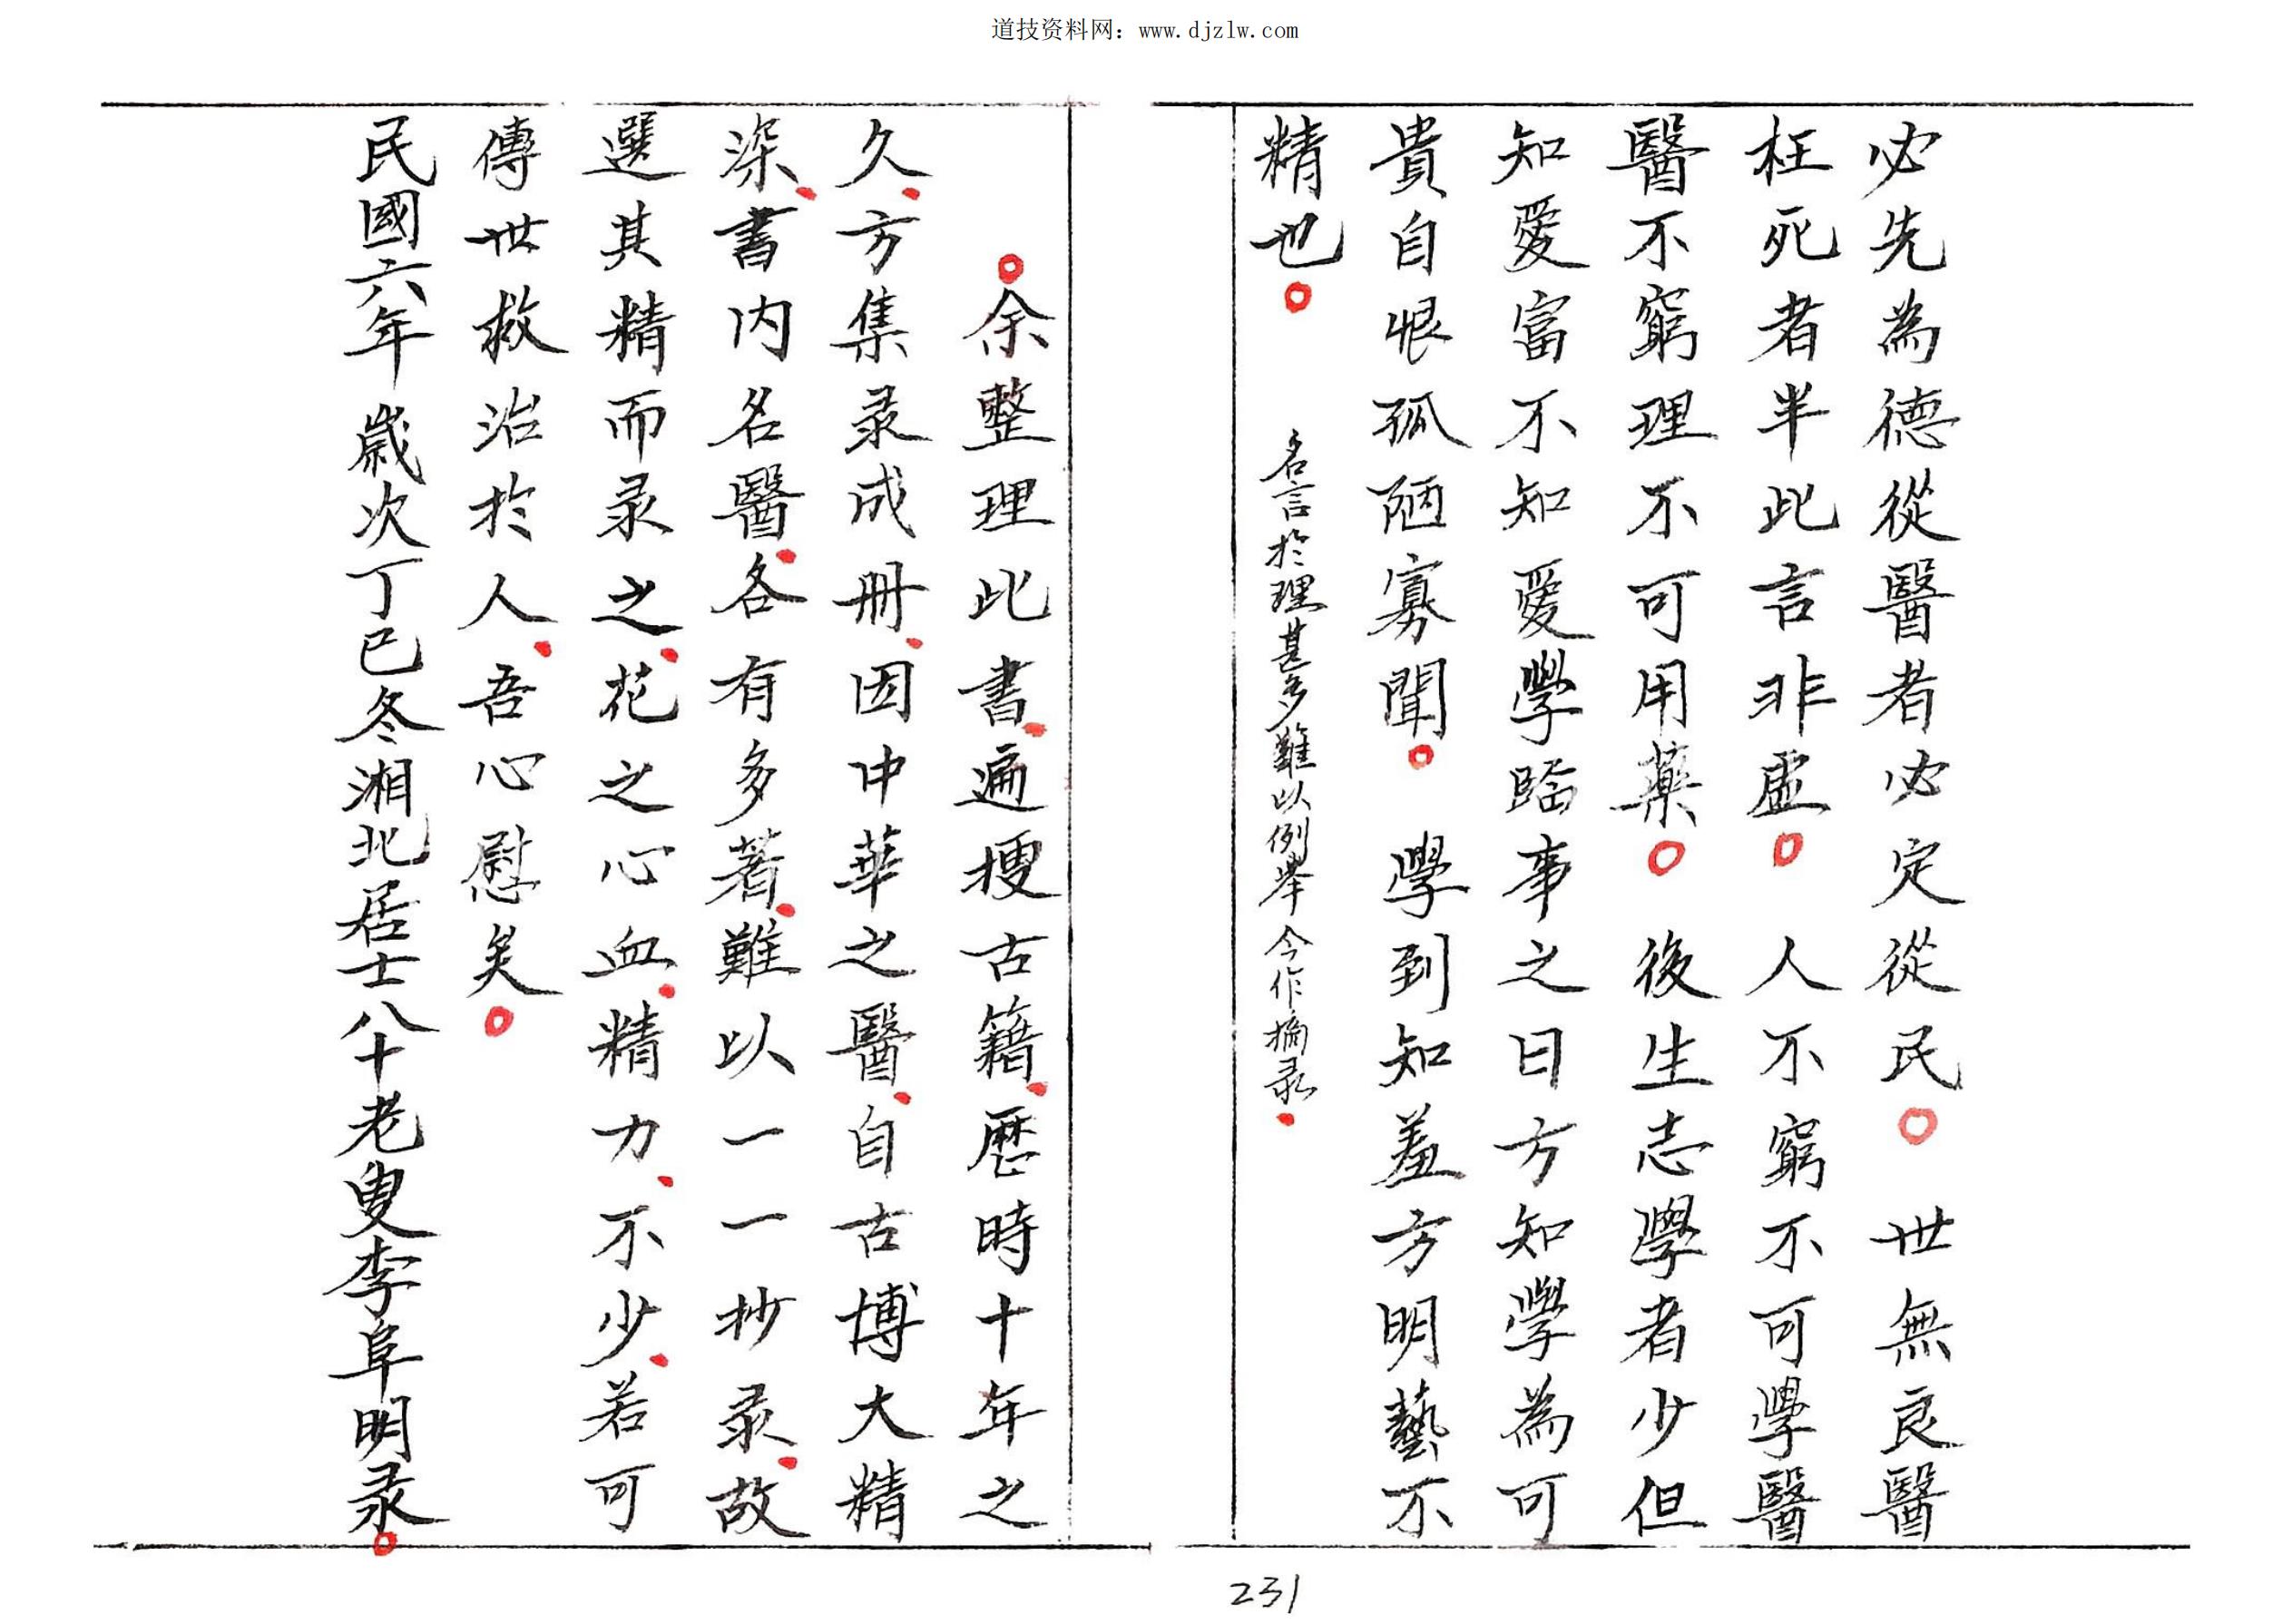 道技资料网：www.djzlw.com
必先為德從醫者必定從民。世無良醫
枉死者半此言非虛。人不窮不可學醫
醫不窮理不可用藥。後生志學者少但
知愛富不知愛學臨事之日方知學為可
貴自恨孤陋寡聞。學到知羞方明藝不
精也。 名言於理甚多難以例舉今作摘录.
。余整理此書.遍搜古籍.歷時十年之
久.方集录成冊.因中華之醫.自古博大精
深.書内名醫.各有多著.難以一一抄录.故
選其精而录之.花之心血.精力.不少.若可
傳世救治於人.吾心慰矣。
民國六年歲次丁巳冬湘北居士八十老叟李阜明录。
231